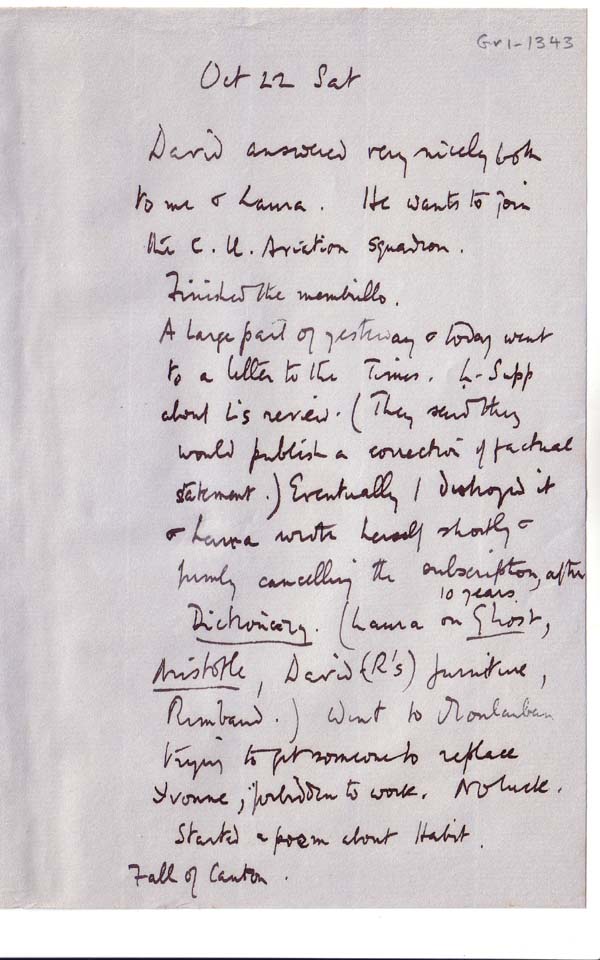 Gr1-1343
Oct 22 Sat
David answered very nicely both
to me & Laura. He wants to join
the C. U. Aviation squadron.
Finished the membrillo.
A large part of yesterday & today went
to a letter to the Times. L-Supp
about L's review. (They said they
would publish a correction of factual
statement.) Eventually I destroyed it
& Laura wrote herself shortly &
firmly cancelling the subscription, after
10 years.
Dictionary. (Laura on Ghost,
Aristotle, David (R's) furniture,
Rimbaud.) Went to Montauban
trying to get someone to replace
Yvonne, forbidden to work. No luck.
Started a poem about Habit.
Fall of Canton.